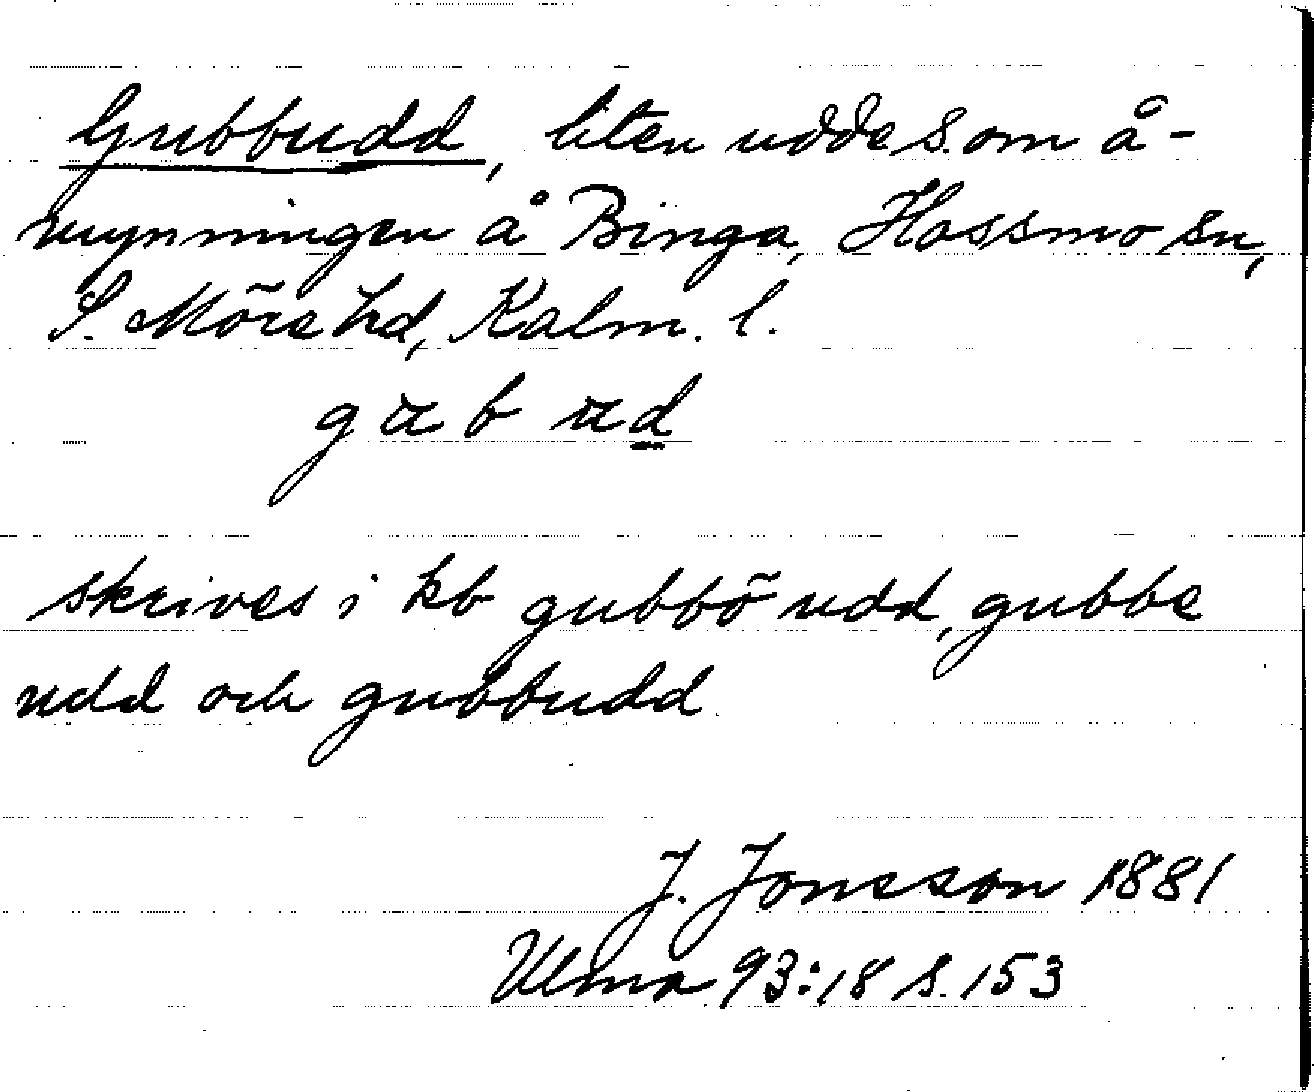 Gubbudd, liten udde s. om å-
mynningen å Binga, Hossmo sn,
S. Möre hd, Kalm. l.
skrives i kb gubbö udd, gubbe
udd och gubbudd.
J. Jonsson 1881
Ulma 93:18 s. 153